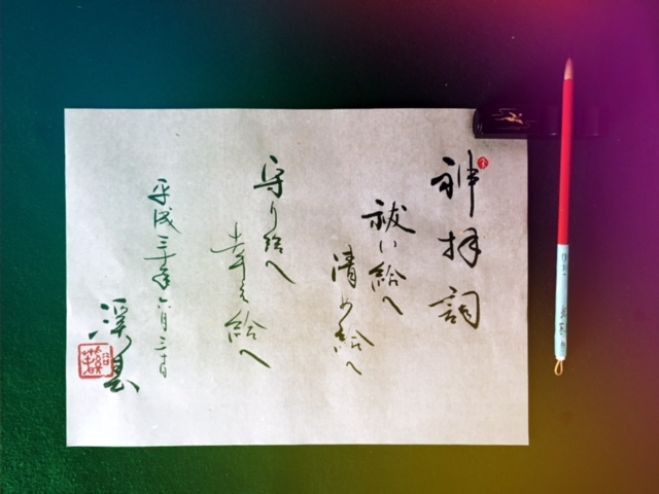 神拝詞
祓い給へ
清め給へ
守り給へ
幸え給へ
平成三十年六月三十日